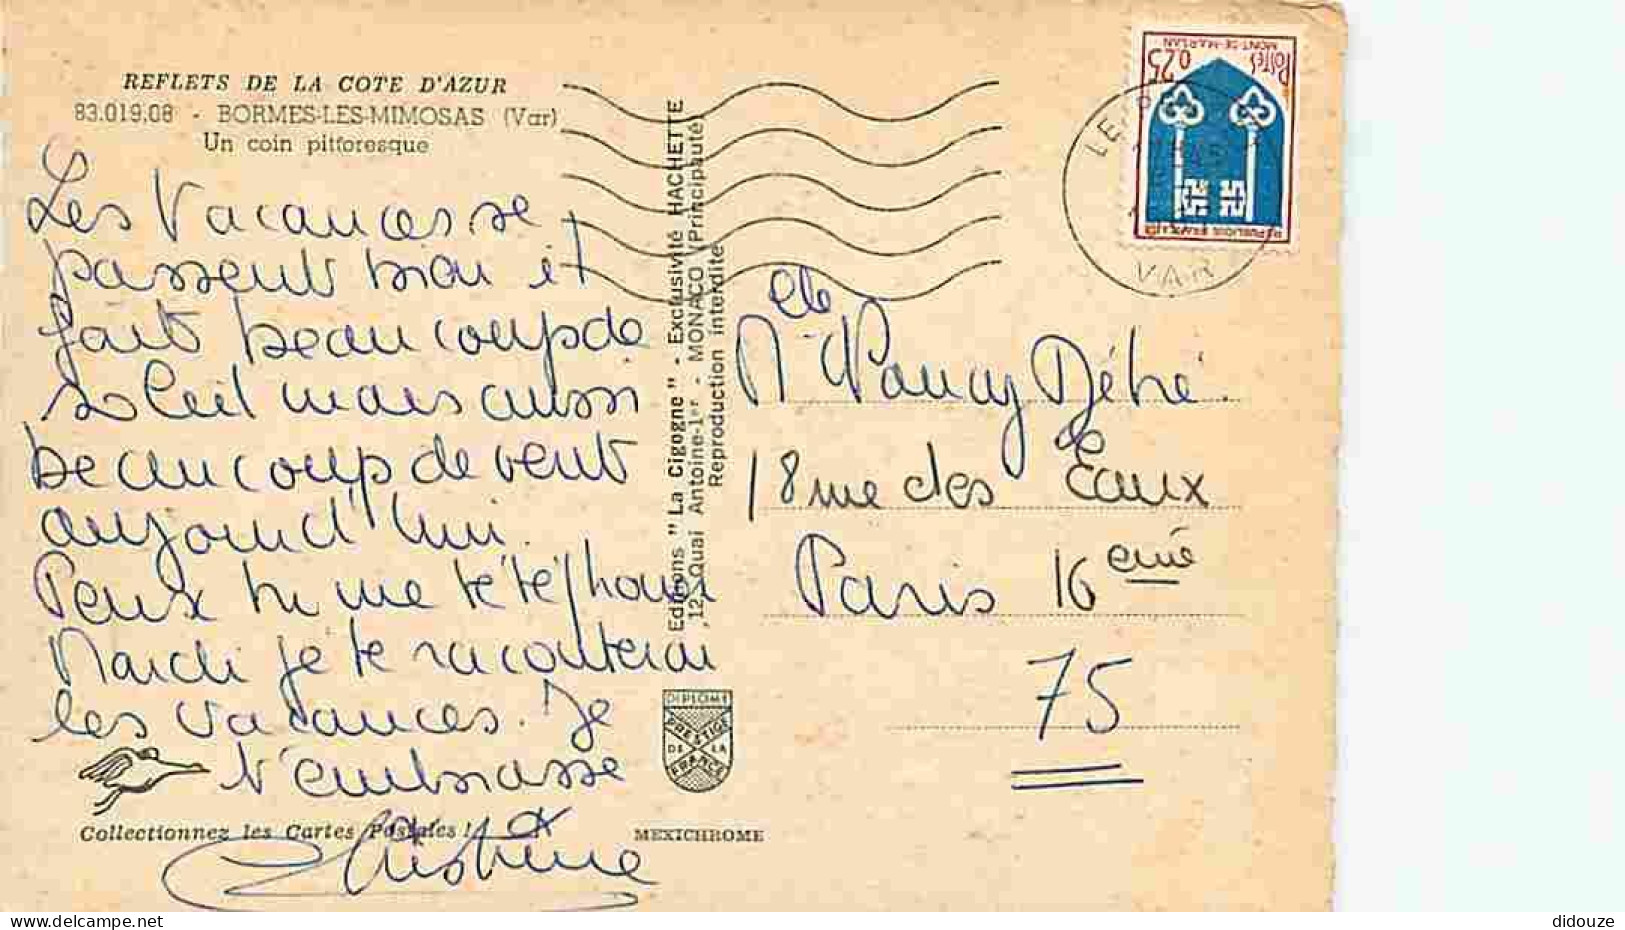 REFLETS DE LA COTE D'AZUR
83.019.08 - BORMES-LES-MIMOSAS (Var)
Un coin pittoresque
Les Vacances se
passent bien il
fait beaucoup de
soleil mais aussi
beaucoup de vent
aujourd'hui.
Peux tu me téléphoner
Mardi je te raconterai
les vacances. Je
t'embrasse
Christine
Collectionnez les Cartes Postales !
MEXICHROME
Editions "La Cigogne" - Exclusivité HACHETTE
12, Quai Antoine-1er - MONACO (Principauté)
Reproduction interdite
DIPLOME
PRESTIGE
DE LA
FRANCE
POSTES
0,25
MONT-DE-MARSAN
REPUBLIQUE FRANÇAISE
LE
VAR
Melle Nancy Débré.
18 rue des Eaux
Paris 16 eme
75
delcampe.net
didouze